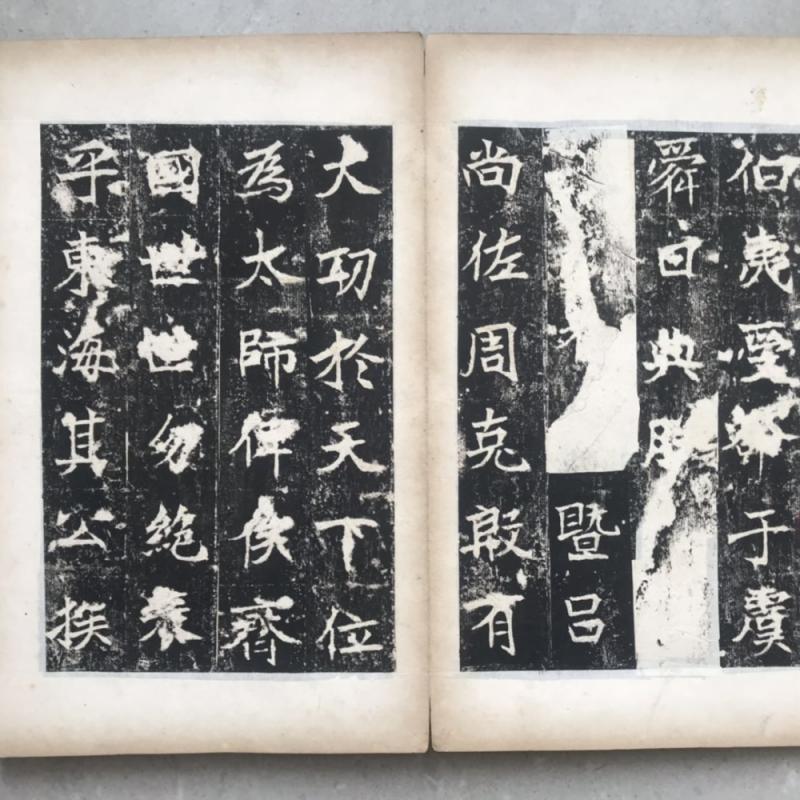 伯夷受于虞
舜曰典朕
暨吕
尚佐周克殷有
大功於天下位
為太師俾侯齊
國世世勿絕表
乎東海其公族